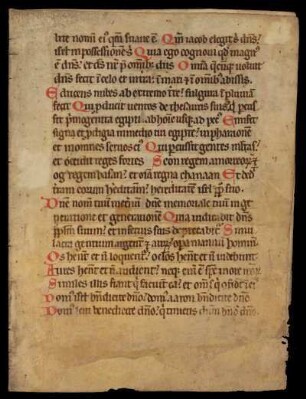 lite nom̅ ei' qm̅ suaue ē Qm̅ iacob elegit s' dn̅s:
isrł in possessionē s' Quia ego cognoui qd̅ magn'
ē dn̅s: et ds̅ nr̅ p̅ om̅ib; diis Omīa quecuq; uoluit
dn̅s fecit ī celo et in t'ra: ī mari et ī om̅ib; abissis
Educens nubes ab extremo t're: fulgura ī pluuiā
fecit Qui p̅ducit uentos de thesauris suis: q̅ p̅cus
sit p̅mogenita egypti ab hoīe usq; ad pec' Emisit
signa et p̅digia in medio tui egypte: in pharaonē
et in omnes seruos ei' Qui p̅cussit gentes m̅ltas:
et occidit reges fortes Seon regem amorreor̅ et
og regem basan: et om̅ia regna chanaan Et ded'
terram eorum hereditatē: hereditatē isrł pp̅lo suo
Dn̅e nom̅ tuū in et'nū: dn̅e memoriale tuū in g̅
neratione et generationē Quia iudicabit dn̅s
pp̅lm suum: et in seruis suis dep̅cabit' Simu
lacra gentium argent' et aur̅: opa manuū hominū
Os hn̅t et n̅ loquent': oc'los hn̅t et n̅ uidebunt
Aures hn̅t et n̅ audient: neq; em̅ ē sp̅c in ore
Similes illis fiant q̅ faciūt ea: et om̅s q' ofidūt ī eis
Dom' isrł bn̅dicite dn̅o: dom' aaron bn̅dicite dn̅o
Dom' leui benedicite dn̅o: q' timetis dn̅m bn̅d' dn̅o